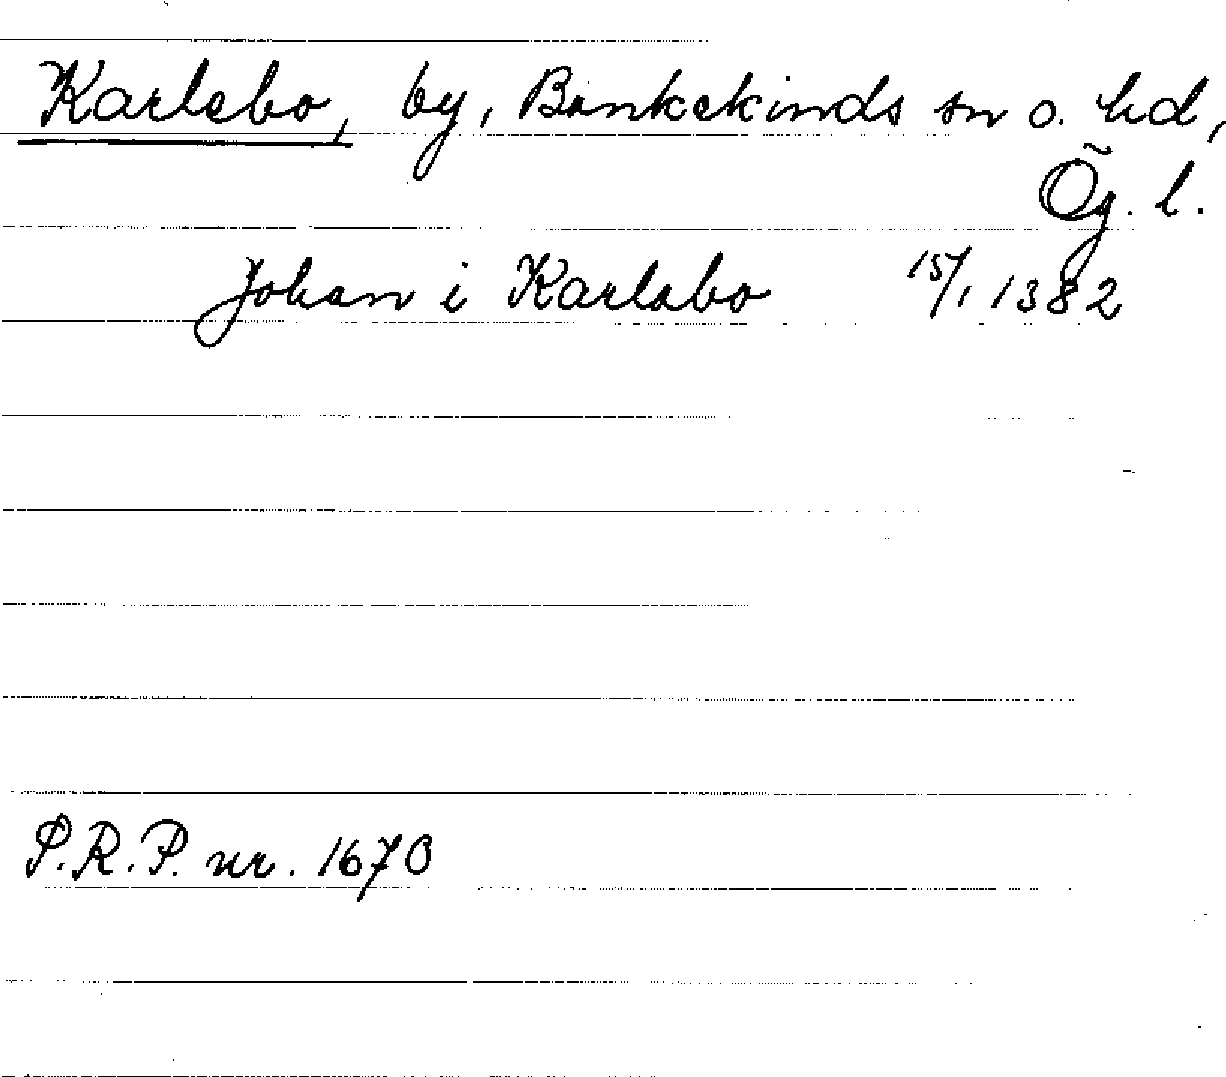 Karlebo, by, Bankekinds sn o. hd,
Ög. l.
Johan i Karlabo 15/1 1382
P.R.P. nr. 1670